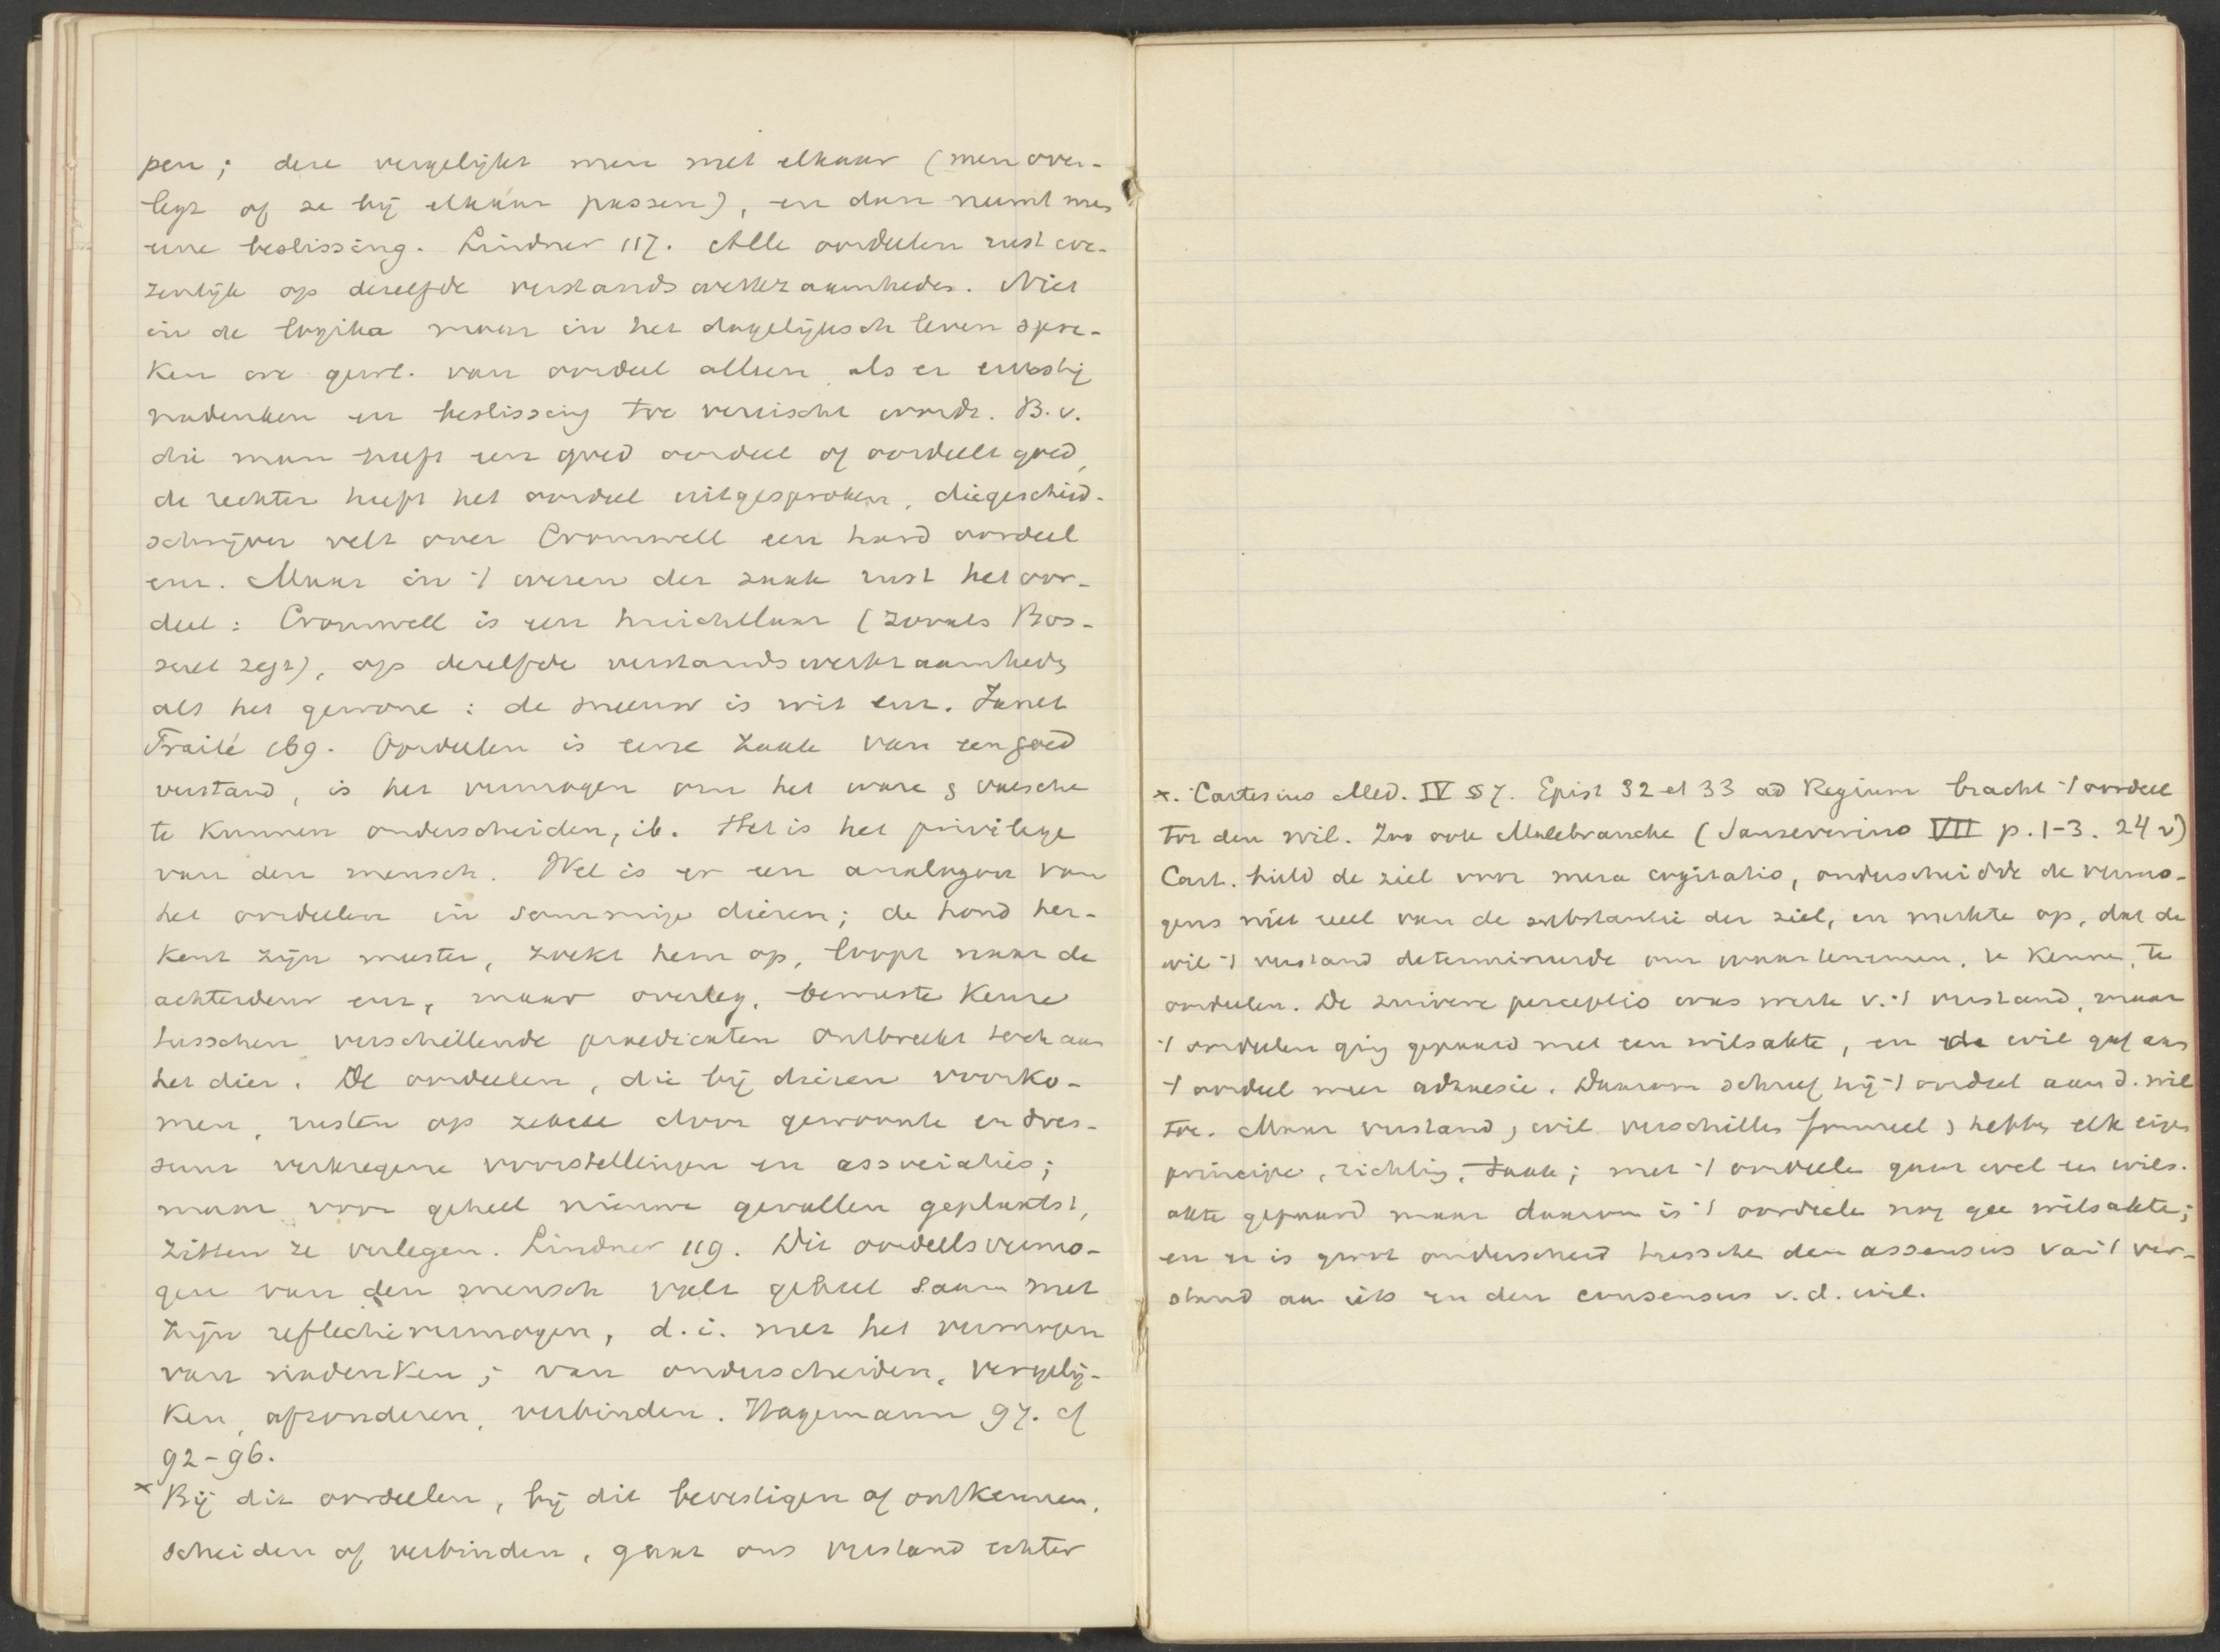 pen; deze vergelijkt men met elkaar (men over-
legt of ze bij elkáár passen), en dan neemt men
eene beslissing. Lindner 117. Alle oordeelen rust we-
zenlijk op dezelfde verstandswerkzaamheden. Niet
in de logika maar in het dagelijksch leven spre-
ken we gewl. van oordeel alleen als er ernstig
nadenken en beslissing toe vereischt wordt. B.v.
die man heeft een goed oordeel of oordeelt goed,
de rechter heeft het oordeel uitgesproken, die geschied-
schrijver velt over Cromwell een hard oordeel
enz. Maar in 't wezen der zaak rust het oor-
deel: Cromwell is een huichelaar (zooals Bos-
suet zegt), op dezelfde verstandswerkzaamheden
als het gewone: de sneeuw is wit enz. Janet
Traité 169. Oordeelen is eene zaak van een goed
verstand, is het vermogen om het ware & valsche
te kunnen onderscheiden, ib. Het is het privilege
van den mensch. Wel is er een analogon van
het oordeelen in sommige dieren; de hond her-
kent zijn meester, zoekt hem op, loopt naar de
achterdeur enz, maar overleg, bewuste keuze
tusschen verschillende praedicaten ontbreekt toch aan
het dier. De oordeelen, die bij dieren voorko-
men, rusten op zekere door gewoonte en dres-
suur verkregene voorstellingen en associaties;
maar voor geheel nieuwe gevallen geplaatst,
zitten ze verlegen. Lindner 119. Dit oordeelsvermo-
gen van den mensch valt geheel saam met
zijn reflectievermogen, d.i. met het vermogen
van nadenken; van onderscheiden, vergelij-
ken, afzonderen, verbinden. Hagemann 97. cf
92-96.
× Bij dit oordeelen, bij dit bevestigen of ontkennen,
scheiden of verbinden, gaat ons verstand echter
×. Cartesius Med. IV § 7. Epist 32 et 33 ad Regium bracht 't oordeel
tot den wil. Zoo ook Malebranche (Sanseverino VII p. 1-3. 24 v)
Cart. hield de ziel voor mera cogitatio, onderscheidde de vermo-
gens niet reel van de substantie der ziel, en merkte op, dat de
wil 't verstand determineerde om waar te nemen, te kennen, te
oordeelen. De zuivere perceptio was werk v. 't verstand, maar
't oordeelen ging gepaard met een wilsakte, en de wil gaf aan
't oordeel meer adhaesie. Daarom schreef hij 't oordeel aan d. wil
toe. Maar verstand, wil verschillen formeel, hebben elk eigen
principe, richting, taak; met 't oordeelen gaat wel een wils-
akte gepaard maar daarom is 't oordeelen nog geen wilsakte;
en er is groot onderscheid tusschen den assensus van 't ver-
stand aan iets en den consensus v. d. wil.